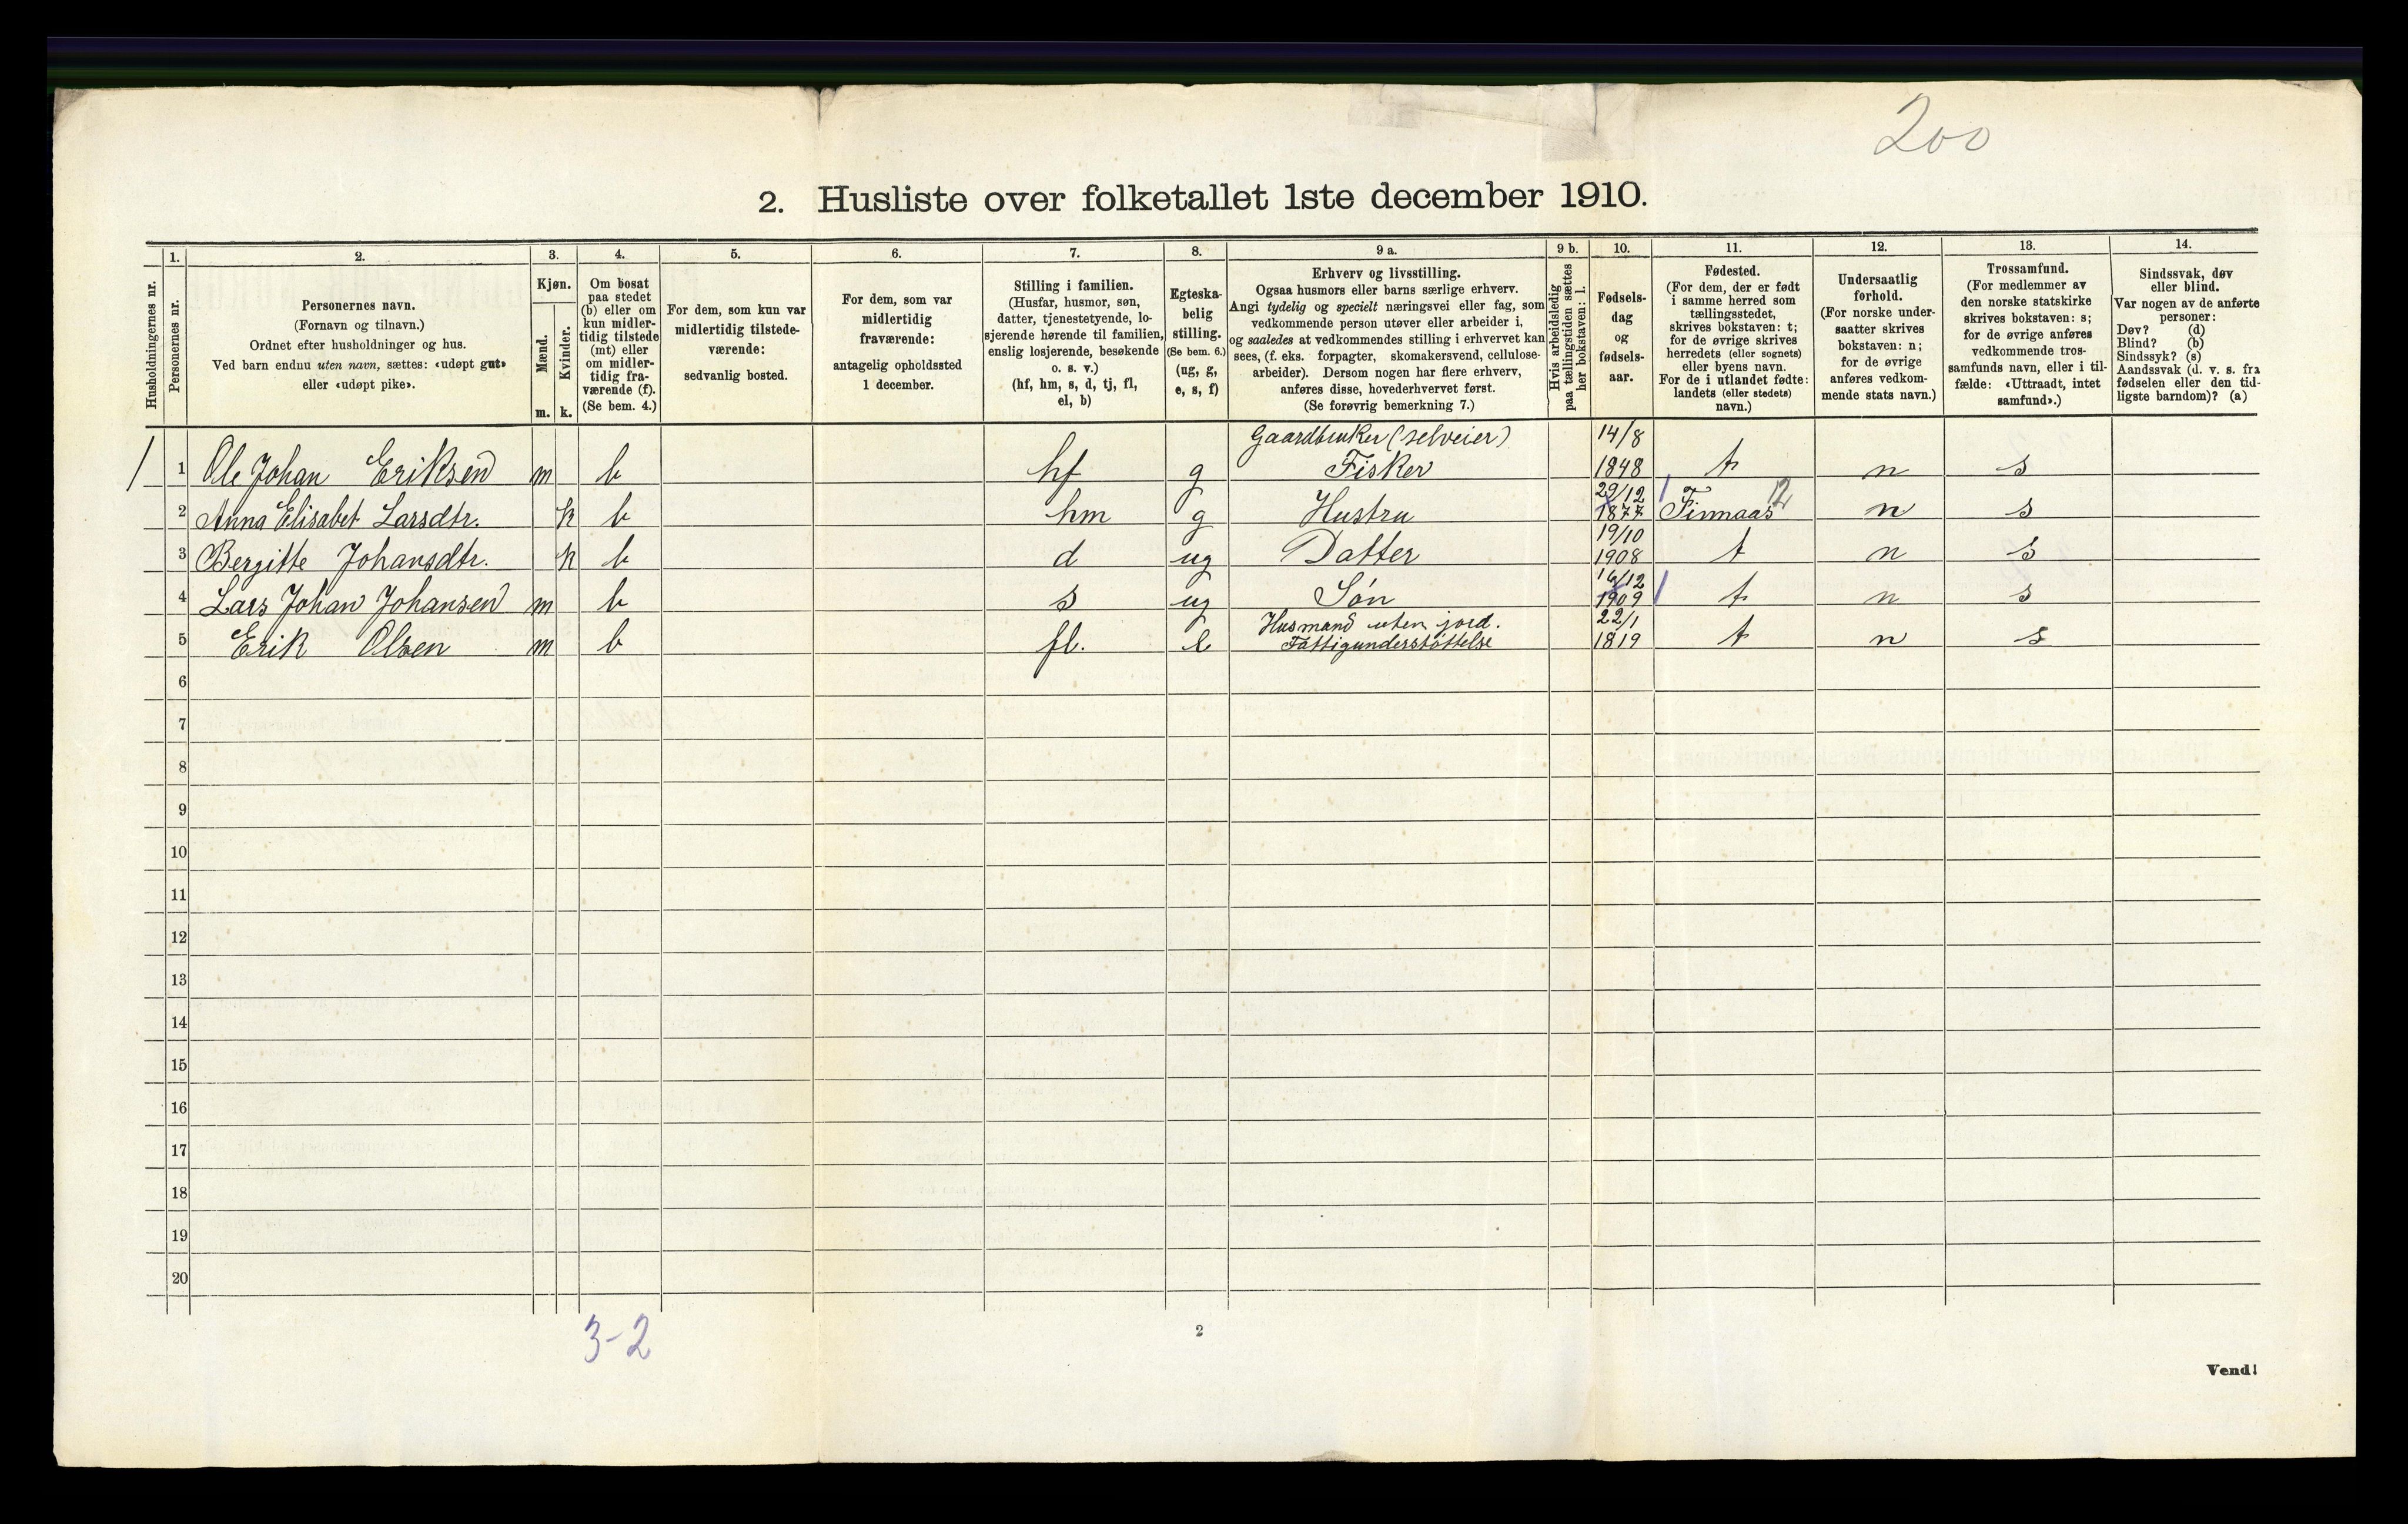 200
2. Husliste over folketallet 1ste december 1910.
Husholdningernes nr.
1.
Personernes nr.
2.
Personernes navn.
(Fornavn og tilnavn.)
Ordnet efter husholdninger og hus.
Ved barn endnu uten navn, sættes: «udøpt gut»
eller «udøpt pike».
3.
Kjøn.
Mænd.
m.
Kvinder.
k.
4.
Om bosat
paa stedet
(b) eller om
kun midler-
tidig tilstede
(mt) eller
om midler-
tidig fra-
værende (f).
(Se bem. 4.)
5.
For dem, som kun var
midlertidig tilstede-
værende:
sedvanlig bosted.
6.
For dem, som var
midlertidig
fraværende:
antagelig opholdssted
1 december.
7.
Stilling i familien.
(Husfar, husmor, søn,
datter, tjenestetyende, lo-
sjerende hørende til familien,
enslig losjerende, besøkende
o. s. v.)
(hf, hm, s, d, tj, fl,
el, b)
8.
Egteska-
belig
stilling.
(Se bem. 6.)
(ug, g,
e, s, f)
9 a.
Erhverv og livsstilling.
Ogsaa husmors eller barns særlige erhverv.
Angi tydelig og specielt næringsvei eller fag, som
vedkommende person utøver eller arbeider i,
og saaledes at vedkommendes stilling i erhvervet kan
sees, (f. eks. forpagter, skomakersvend, cellulose-
arbeider). Dersom nogen har flere erhverv,
anføres disse, hovederhvervet først.
(Se forøvrig bemerkning 7.)
9 b.
Hvis arbeidsledig
paa tællingstiden sættes
her bokstaven: l.
10.
Fødsels-
dag
og
fødsels-
aar.
11.
Fødested.
(For dem, der er født
i samme herred som
tællingsstedet,
skrives bokstaven: t;
for de øvrige skrives
herredets (eller sognets)
eller byens navn.
For de i utlandet fødte:
landets (eller stedets)
navn.)
12.
Undersaatlig
forhold.
(For norske under-
saatter skrives
bokstaven: n;
for de øvrige
anføres vedkom-
mende stats navn.)
13.
Trossamfund.
(For medlemmer av
den norske statskirke
skrives bokstaven: s;
for de øvrige anføres
vedkommende tros-
samfunds navn, eller i til-
fælde: «Uttraadt, intet
samfund».)
14.
Sindssvak, døv
eller blind.
Var nogen av de anførte
personer:
Døv? (d)
Blind? (b)
Sindssyk? (s)
Aandssvak (d. v. s. fra
fødselen eller den tid-
ligste barndom)? (a)
Gaardbruker (selveier) 14/8
1 Ole Johan Eriksen m b hf g Fisker 1848 t n s
29/12 12
2 Anna Elisabet Larsdtr. k b hm g Hustru 1877 Finnaas n s
19/10
3 Bergitte Johansdtr. k b d ug Datter 1908 t n s
16/12
4 Lars Johan Johansen m b s ug Søn 1909 t n s
Husmand uten jord. 22/1
5 Erik Olsen m b fl. e Fattigunderstøttelse 1819 t n s
6
7
8
9
10
11
12
13
14
15
16
17
18
19
20
3-2
2
Vend!